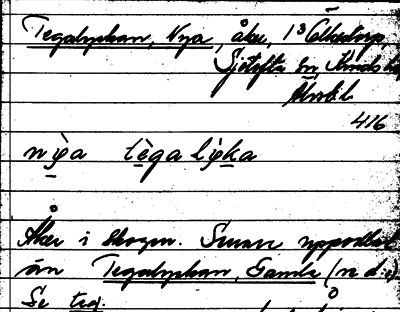 Tegalyckan, Nya, åker, 1³ Elkestorp,
Sjötofta sn, Kinds hd
Älvsb. l.
416
nỳa tègalỳka
Åker i skogen. Senare uppodlad
än Tegalyckan, Gamla (se d.o.)
Se teg.